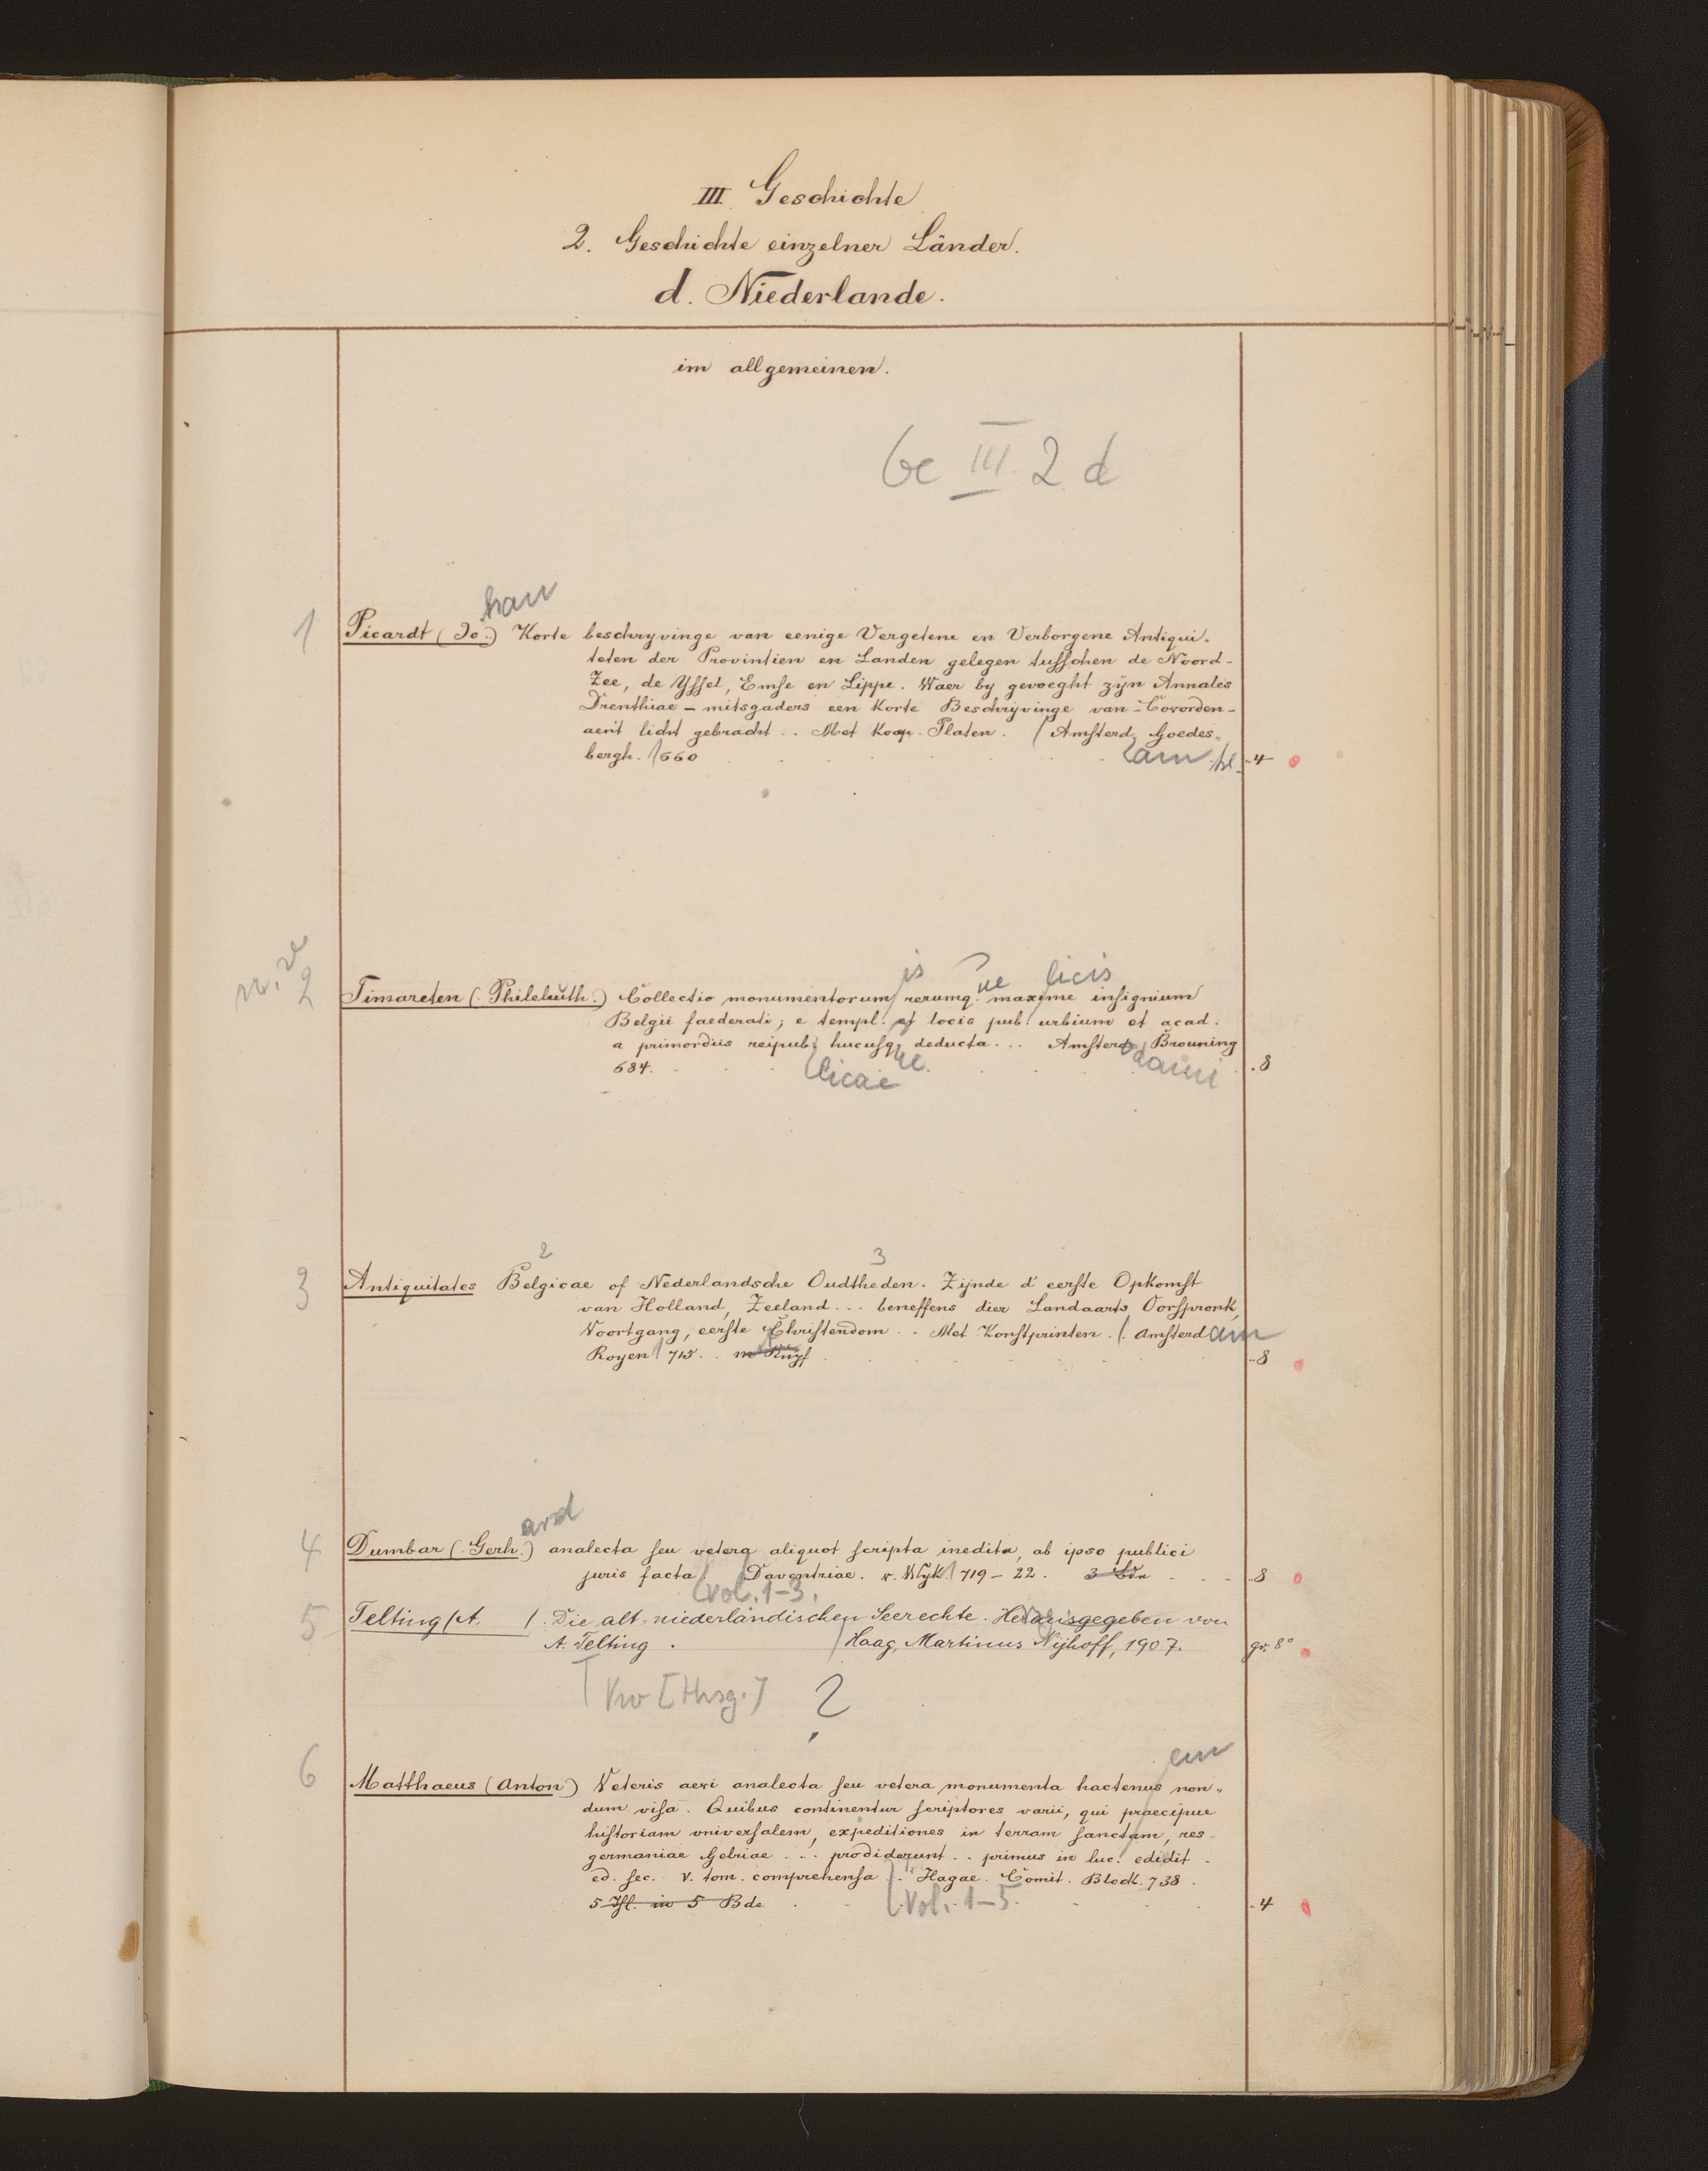 III. Geschichte
2. Geschichte einzelner Länder.
d. Niederlande.
im allgemeinen.
Ge III 2 d
han
1 Picardt (Jo.) Korte beschryvinge van eenige Vergetene en Verborgene Antiqui-
teten der Provintien en Landen gelegen tusschen de Noord-
Zee, de Yssel, Emse en Lippe. Waer by gevoeght zijn Annales
Drenthiae – mitsgaders een Korte Beschrijvinge van – Covorden –
aen't licht gebracht .. Met Koop. Platen. / Amsterd. Goedes-
bergh. 1660 am 4
is ue licis
2 Timareten (Phileleuth.) Collectio monumentorum rerumq. maxime insignium
Belgii faederati; e templ. et locis pub. urbium et acad.
a primordiis reipub. hucusq. deducta ... Amsterd. Brouning
684. licae ue dami 8
2 3
3 Antiquitates Belgicae of Nederlandsche Oudtheden. Zijnde d'eerste Opkomst
van Holland, Zeeland ... beneffens dier Landaarts Oorspronk,
Voortgang, eerste Christendom .. Met Konstprinten. /. Amsterdam
Royen 1715. . m Kupf 8
ard
4 Dumbar (Gerh.) analecta seu vetera aliquot scripta inedita, ab ipso publici
juris facta. Daventriae. v. Wyk. 1719–22. 3 Bdn 8
Vol. 1–3.
5 Telting (A. /. Die alt-niederländischen Seerechte. Herausgegeben von
A. Telting. / Haag, Martinus Nijhoff, 1907. gr. 8°
Vw [Hrsg.] ?
em
6 Matthaeus (Anton) Veteris aevi analecta seu vetera monumenta hactenus non-
dum visa. Quibus continentur scriptores varii, qui praecipue
historiam universalem, expeditiones in terram sanctam, res
germaniae Gelriae ... prodiderunt .. primus in luc. edidit.
ed. sec. V. tom. comprehensa /. Hagae. Comit. Block. 738.
5 Thl. in 5 Bde Vol. 1–5. 4